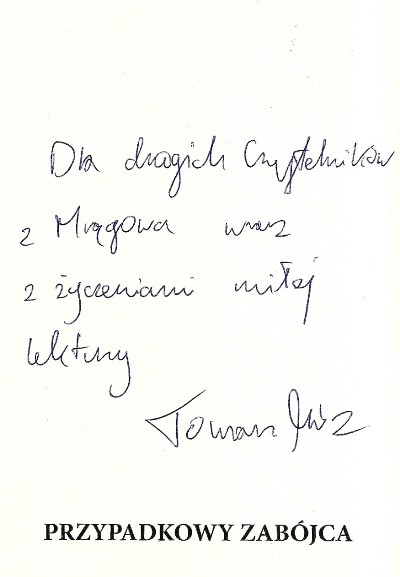 Dla drogich Czytelników
z Mrągowa wraz
z życzeniami miłej
lektury
Tomasz Mróz
PRZYPADKOWY ZABÓJCA